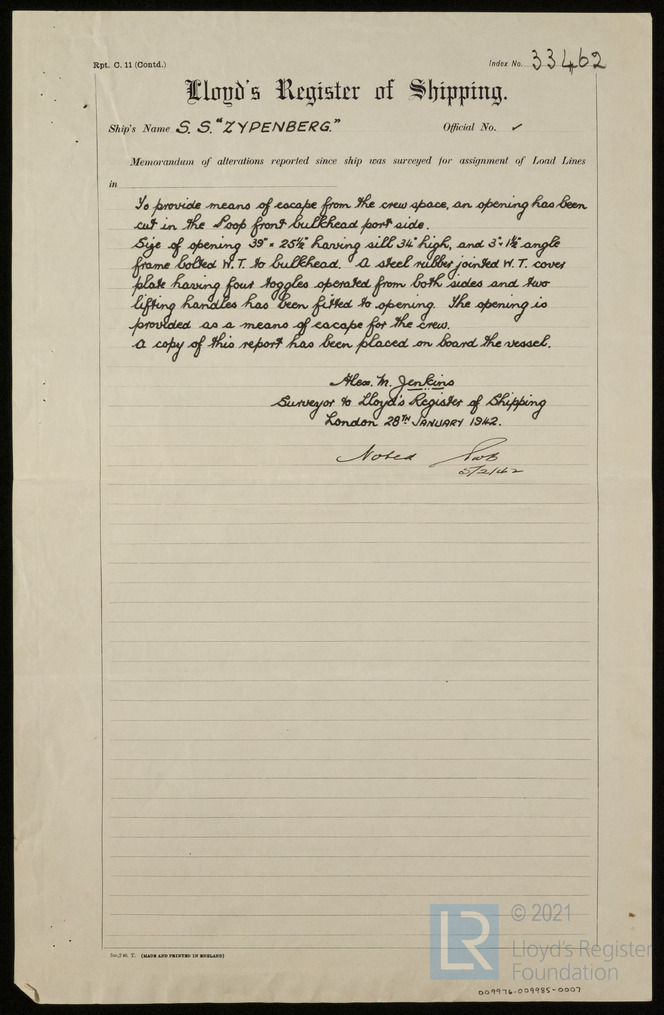 Rpt. C. 11 (Contd.)
Index No. 33462
Lloyd's Register of Shipping.
Ship's Name S. S. "ZYPENBERG."
Official No. ✓
Memorandum of alterations reported since ship was surveyed for assignment of Load Lines
in
To provide means of escape from the crew space, an opening has been
cut in the Poop front bulkhead port side.
Size of opening 39" × 25½" having sill 34" high, and 3" × 1½" angle
frame bolted W.T. to bulkhead. A steel rubber jointed W.T. cover
plate having four toggles operated from both sides and two
lifting handles has been fitted to opening. The opening is
provided as a means of escape for the crew.
A copy of this report has been placed on board the vessel.
Alex. M. Jenkins
Surveyor to Lloyd's Register of Shipping
London 28TH JANUARY 1942.
Noted
5/2/42
(MADE AND PRINTED IN ENGLAND)
LR
© 2021
Lloyd's Register
Foundation
009976-009985-0007